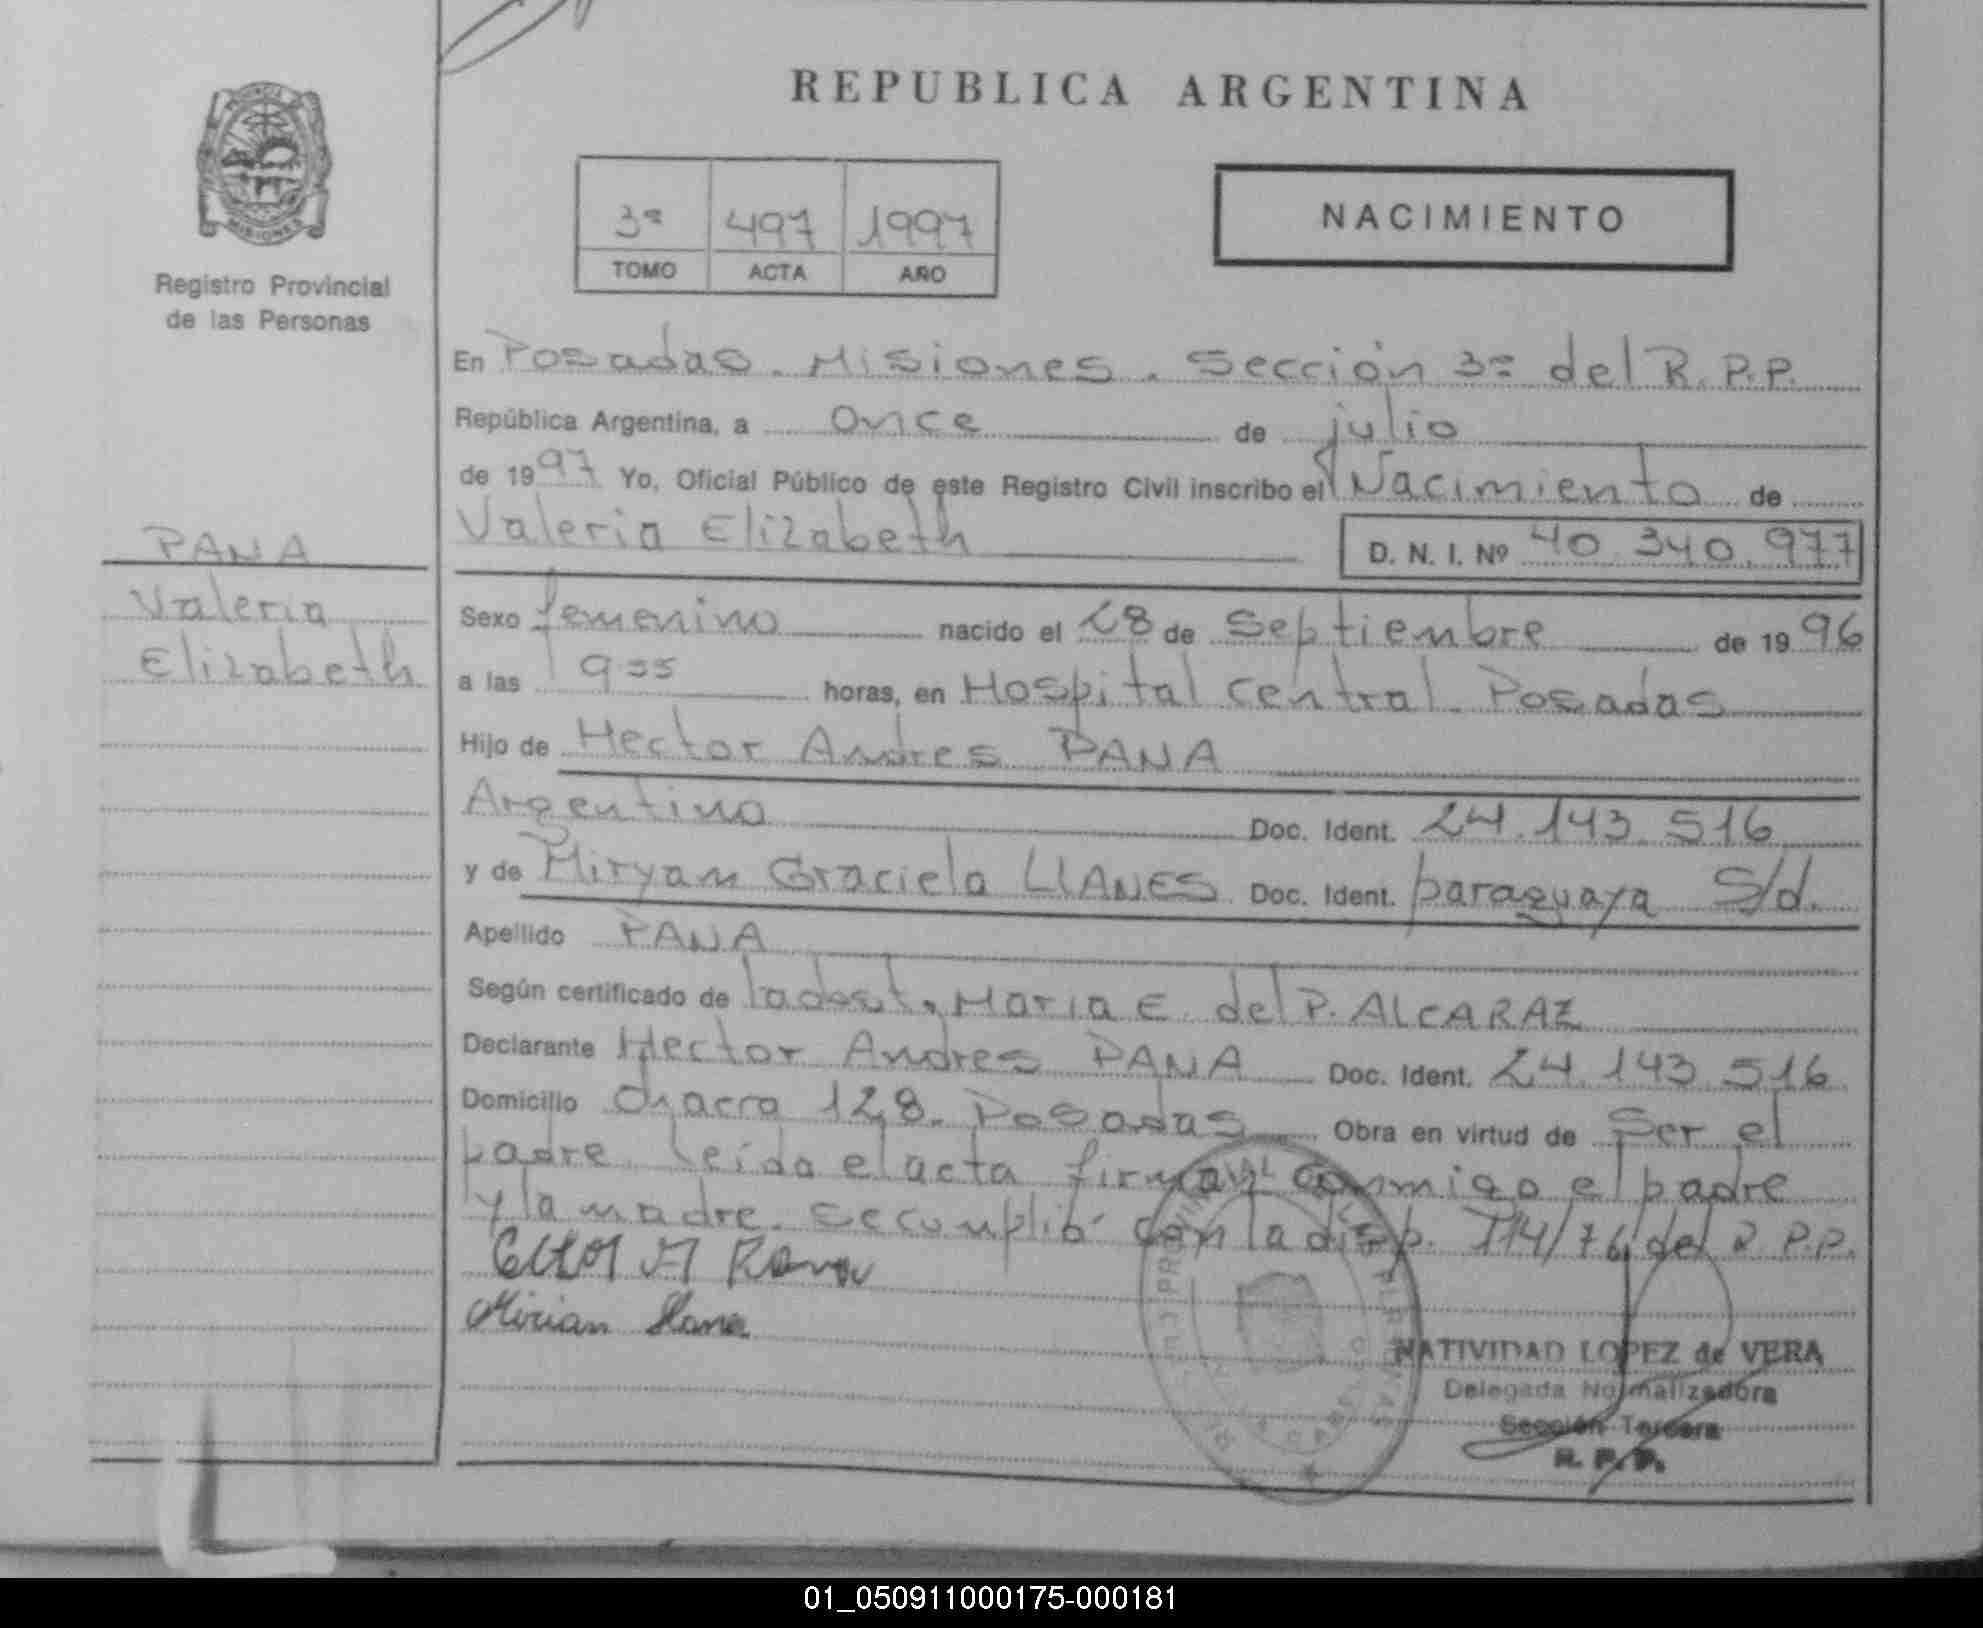 REPUBLICA ARGENTINA
MISIONES
Registro Provincial
de las Personas
3ª 497 1997
TOMO ACTA AÑO
NACIMIENTO
En Posadas. Misiones. Sección 3ª del R.P.P.
República Argentina, a once de julio
de 1997 Yo, Oficial Público de este Registro Civil inscribo el Nacimiento de
Valeria Elizabeth D. N. I. Nº 40.340.977
PANA
Valeria
Elizabeth
Sexo femenino nacido el 28 de Septiembre de 1996
a las 9 55 horas, en Hospital Central. Posadas
Hijo de Hector Andres PANA
Argentino Doc. Ident. 24.143.516
y de Miryam Graciela LLANES Doc. Ident. paraguaya S/d.
Apellido PANA
Según certificado de la obst. Maria E. del P. ALCARAZ
Declarante Hector Andres PANA Doc. Ident. 24.143.516
Domicilio Chacra 128. Posadas Obra en virtud de Ser el
padre. Leida el acta firman conmigo el padre
y la madre. Se cumplió con la disp. 114/76 del R.P.P.
Mirian
NATIVIDAD LOPEZ de VERA
Delegada Normalizadora
Sección Tercera
R. P. P.
01_050911000175-000181